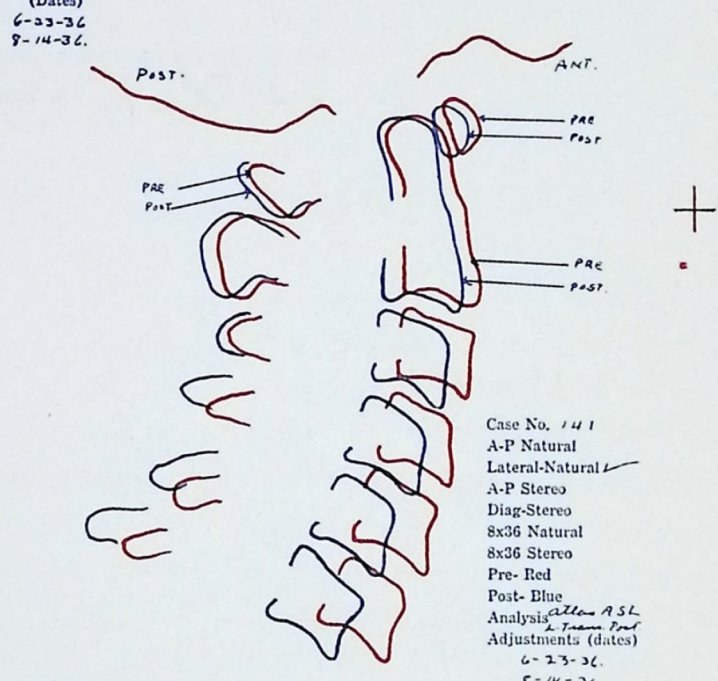 (Dates)
6-23-36
8-14-36.
POST.
ANT.
PRE
POST
PRE
POST.
PRE
POST.
Case No. 141
A-P Natural
Lateral-Natural ✓
A-P Stereo
Diag-Stereo
8x36 Natural
8x36 Stereo
Pre- Red
Post- Blue
Analysis atlas ASL
L. Trans. Post.
Adjustments (dates)
6-23-36.
8-14-36